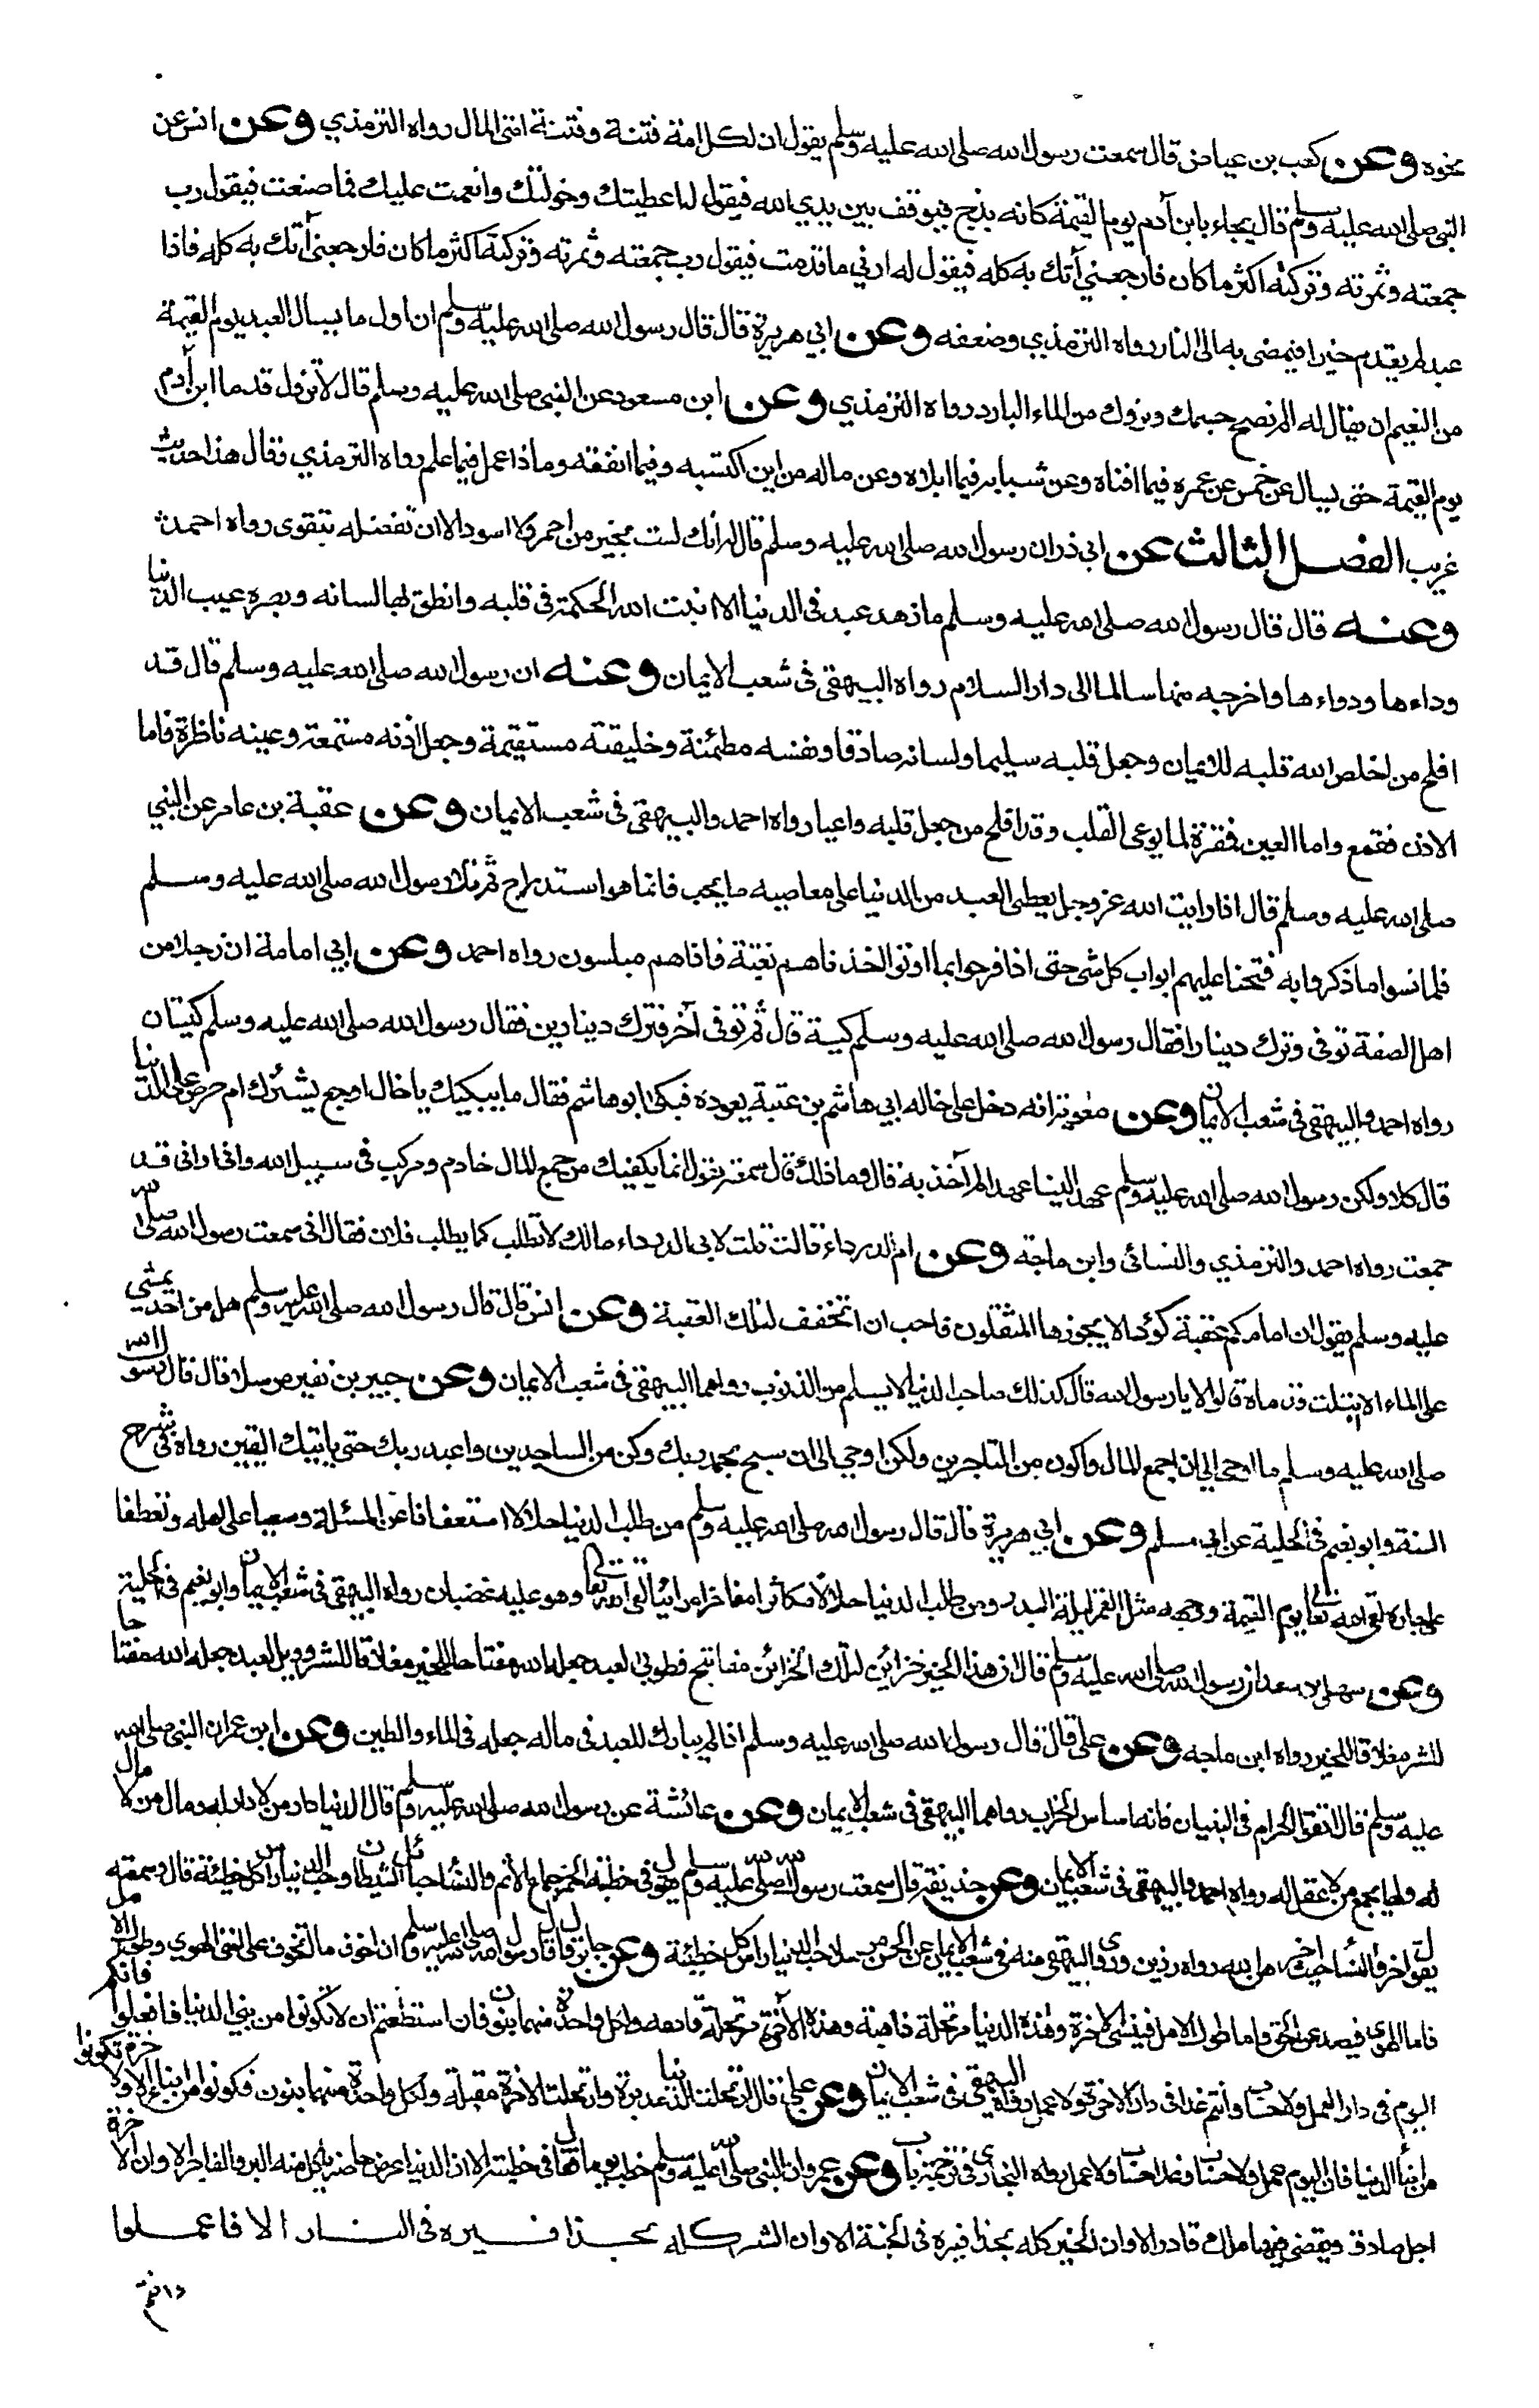 نحوه وعن كعب بن عياض قال سمعت رسول الله صلى الله عليه وسلم يقول ان لكل امة فتنة وفتنة امتي المال رواه الترمذي وعن انس عن
النبي صلى الله عليه وسلم قال يجاء بابن آدم يوم القيمة كانه بذج فيوقف بين يدي الله فيقول له اعطيتك وخولتك وانعمت عليك فما صنعت فيقول رب
جمعته وثمرته وتركته اكثر ما كان فارجعني آتك به كله فيقول له ارني ما قدمت فيقول رب جمعته وثمرته وتركته اكثر ما كان فارجعني آتك به كله فاذا
عبد لم يقدم خيرا فيمضى به الى النار رواه الترمذي وضعفه وعن ابي هريرة قال قال رسول الله صلى الله عليه وسلم ان اول ما يسال العبد يوم القيمة
من النعيم ان يقال له الم نصح جسمك ونروك من الماء البارد رواه الترمذي وعن ابن مسعود عن النبي صلى الله عليه وسلم قال لا تزول قدما ابن آدم
يوم القيمة حتى يسال عن خمس عن عمره فيما افناه وعن شبابه فيما ابلاه وعن ماله من اين اكتسبه وفيما انفقه وماذا عمل فيما علم رواه الترمذي وقال هذا حديث
غريب الفصل الثالث عن ابي ذر ان رسول الله صلى الله عليه وسلم قال له انك لست بخير من احمر ولا اسود الا ان تفضله بتقوى رواه احمد
وعنه قال قال رسول الله صلى الله عليه وسلم ما زهد عبد في الدنيا الا انبت الله الحكمة في قلبه وانطق لها لسانه وبصره عيب الدنيا
وداءها ودواءها واخرجه منها سالما الى دار السلام رواه البيهقي في شعب الايمان وعنه ان رسول الله صلى الله عليه وسلم قال قد
افلح من اخلص الله قلبه للايمان وجعل قلبه سليما ولسانه صادقا ونفسه مطمئنة وخليقته مستقيمة وجعل اذنه مستمعة وعينه ناظرة فاما
الاذن فقمع واما العين فمقرة لما يوعى القلب وقد افلح من جعل قلبه واعيا رواه احمد والبيهقي في شعب الايمان وعن عقبة بن عامر عن النبي
صلى الله عليه وسلم قال اذا رايت الله عز وجل يعطي العبد من الدنيا على معاصيه ما يحب فانما هو استدراج ثم تلا رسول الله صلى الله عليه وسلم
فلما نسوا ما ذكروا به فتحنا عليهم ابواب كل شى حتى اذا فرحوا بما اوتوا اخذناهم بغتة فاذاهم مبلسون رواه احمد وعن ابي امامة ان رجلا من
اهل الصفة توفى وترك دينارا فقال رسول الله صلى الله عليه وسلم كية قال ثم توفى آخر فترك دينارين فقال رسول الله صلى الله عليه وسلم كيتان
رواه احمد والبيهقي في شعب الايمان وعن معوية انه دخل على خاله ابي هاشم بن عتبة يعوده فبكى ابو هاشم فقال ما يبكيك يا خال اوجع يشئزك ام حرص على الدنيا
قال كلا ولكن رسول الله صلى الله عليه وسلم عهد الينا عهدا لم آخذ به قال وما ذلك قال سمعته يقول انما يكفيك من جمع المال خادم ومركب في سبيل الله واني اراني قد
جمعت رواه احمد والترمذي والنسائي وابن ماجة وعن ام الدرداء قالت قلت لابي الدرداء مالك لا تطلب كما يطلب فلان فقال اني سمعت رسول الله صلى الله
عليه وسلم يقول ان امامكم عقبة كؤدا لا يجوزها المثقلون فاحب ان اتخفف لتلك العقبة وعن انس قال قال رسول الله صلى الله عليه وسلم هل من احد يمشي
على الماء الا ابتلت قدماه قالوا لا يا رسول الله قال كذلك صاحب الدنيا لا يسلم من الذنوب رواهما البيهقي في شعب الايمان وعن جبير بن نفير مرسلا قال قال رسول الله
صلى الله عليه وسلم ما اوحي الي ان اجمع المال واكون من التاجرين ولكن اوحي الى ان سبح بحمد ربك وكن من الساجدين واعبد ربك حتى ياتيك اليقين رواه في شرح
السنة وابو نعيم في الحلية عن ابي مسلم وعن ابي هريرة قال قال رسول الله صلى الله عليه وسلم من طلب الدنيا حلالا استعفافا عن المسئلة وسعيا على اهله وتعطفا
على جاره لقي الله تعالى يوم القيمة ووجهه مثل القمر ليلة البدر ومن طلب الدنيا حلالا مكاثرا مفاخرا مرائيا لقي الله تعالى وهو عليه غضبان رواه البيهقي في شعب الايمان وابو نعيم في الحلية
وعن سهل بن سعد ان رسول الله صلى الله عليه وسلم قال ان هذا الخير خزائن لتلك الخزائن مفاتيح فطوبى لعبد جعله الله مفتاحا للخير مغلاقا للشر وويل لعبد جعله الله مفتاحا
للشر مغلاقا للخير رواه ابن ماجه وعن علي قال قال رسول الله صلى الله عليه وسلم اذا لم يبارك للعبد في ماله جعله في الماء والطين وعن ابن عمر ان النبي صلى الله
عليه وسلم قال اتقوا الحرام في البنيان فانه اساس الخراب رواهما البيهقي في شعب الايمان وعن عائشة عن رسول الله صلى الله عليه وسلم قال الدنيا دار من لا دار له ومال من لا مال
له ولها يجمع من لا عقل له رواه احمد والبيهقي في شعب الايمان وعن حذيفة قال سمعت رسول الله صلى الله عليه وسلم يقول في خطبته الخمر جماع الاثم والنساء حبائل الشيطان وحب الدنيا راس كل خطيئة قال وسمعته
يقول اخروا النساء حيث اخرهن الله رواه رزين وروى البيهقي منه في شعب الايمان عن الحسن مرسلا حب الدنيا راس كل خطيئة وعن جابر قال قال رسول الله صلى الله عليه وسلم ان اخوف ما اتخوف على امتي الهوى وطول الامل
فاما الهوى فيصد عن الحق واما طول الامل فينسى الاخرة وهذه الدنيا مرتحلة ذاهبة وهذه الآخرة مرتحلة قادمة ولكل واحدة منهما بنون فان استطعتم ان لا تكونوا من بني الدنيا فافعلوا فانكم
اليوم في دار العمل ولا حساب وانتم غدا في دار الاخرة ولا عمل رواه البيهقي في شعب الايمان وعن علي قال ارتحلت الدنيا مدبرة وارتحلت الاخرة مقبلة ولكل واحدة منهما بنون فكونوا من ابناء الاخرة ولا تكونوا
من ابناء الدنيا فان اليوم عمل ولا حساب وغدا حساب ولا عمل رواه البخاري في ترجمة باب وعن عمرو ان النبي صلى الله عليه وسلم خطب يوما فقال في خطبته الا ان الدنيا عرض حاضر ياكل منه البر والفاجر الا وان الاخرة
اجل صادق ويقضي فيها ملك قادر الا وان الخير كله بحذافيره في الجنة الا وان الشر كله بحذافيره في النار الا فاعملوا